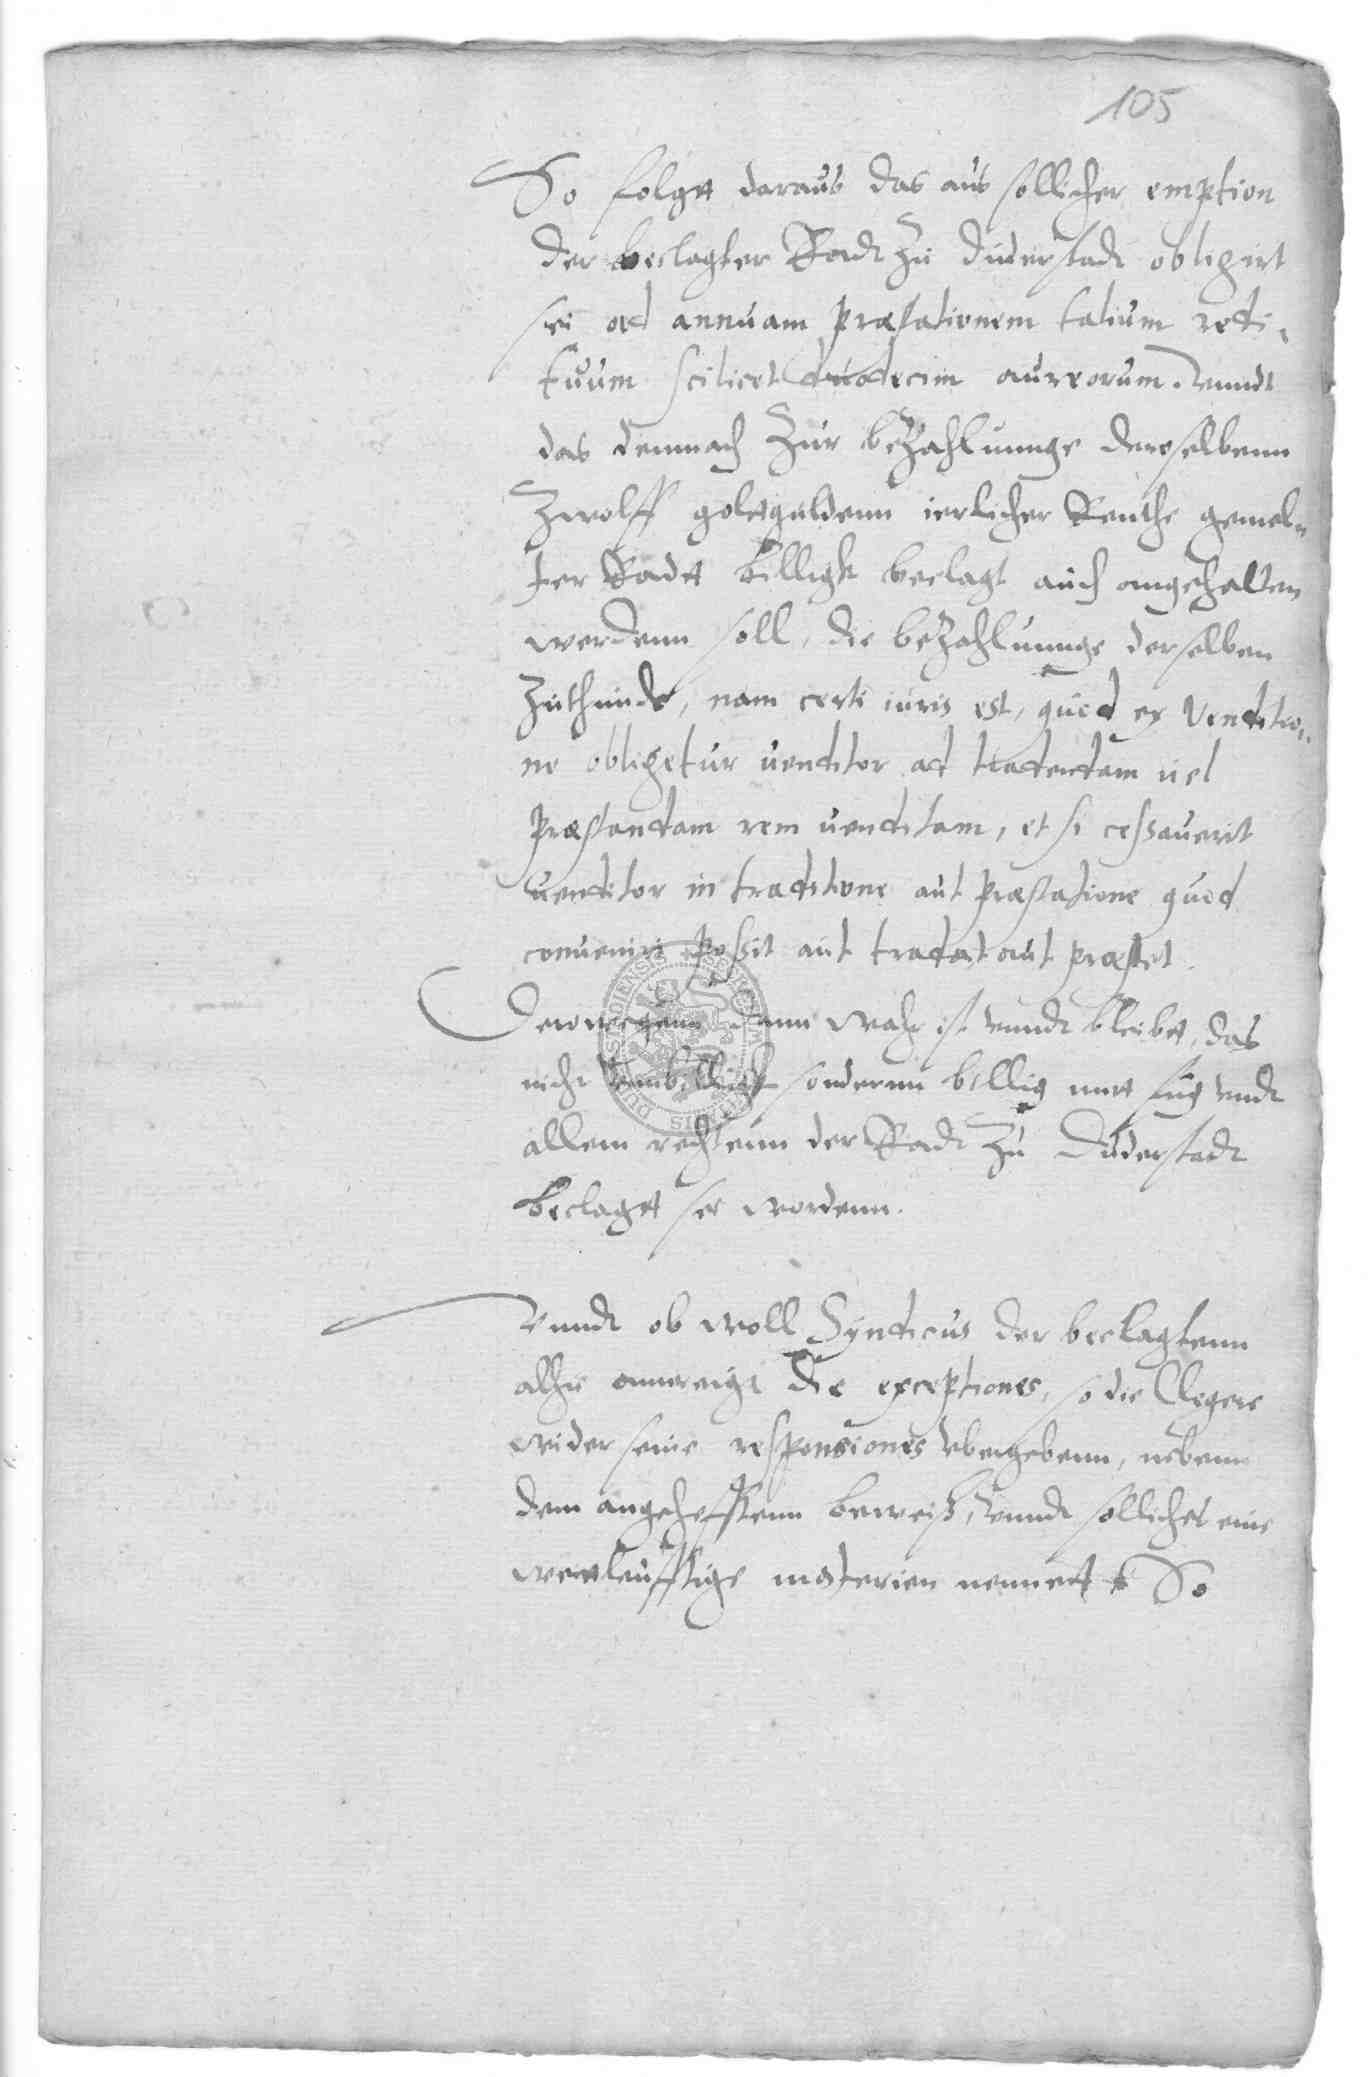 105
So folgtt daraus das aus sollicher emption
der beclagter Radt zu Duderstadt obligirt
sei ad annuam præstationem talium redi-
tuum scilicet duodecim aureorum. Vnndt
das demnach zur bezahlunge derselbenn
zwolff goltguldenn ierlicher Renthe gemel-
ter Radtt billigk beclagt auch angehalten
werdenn soll, die bezahlunnge derselben
zuthunde, nam certi iuris est, quod ex venditio-
ne obligetur uenditor ad tradendam uel
præstandam rem uenditam, et si cessauerit
uenditor in traditione aut præstatione quod
conueniri possit aut tradat aut præstet.
Derowegenn dann wahr ist vnndt bleibtt, das
nicht vnnbilligk sondernn billig mitt fug vndt
allem rechtenn der Radt zu Duderstadt
beclagtt sei wordenn.
Vnndt ob woll Syndicus der beclagtenn
alhie die exceptiones, so die Clegere
wider seine responsiones vbergebenn, nebenn
dem angehefftenn beweiß, vnndt sollichs eine
weitleufftige materien nennett So
DUDERSTADIENSIS